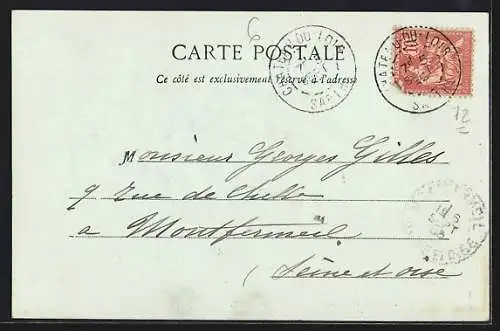 6
CARTE POSTALE
Ce côté est exclusivement réservé à l'adresse
CHATEAU-DU-LOIR
SARTHE
CHATEAU-DU-LOIR
12
Monsieur Georges Gilles
9 Rue de Chelles
a Montfermeil
(Seine et oise